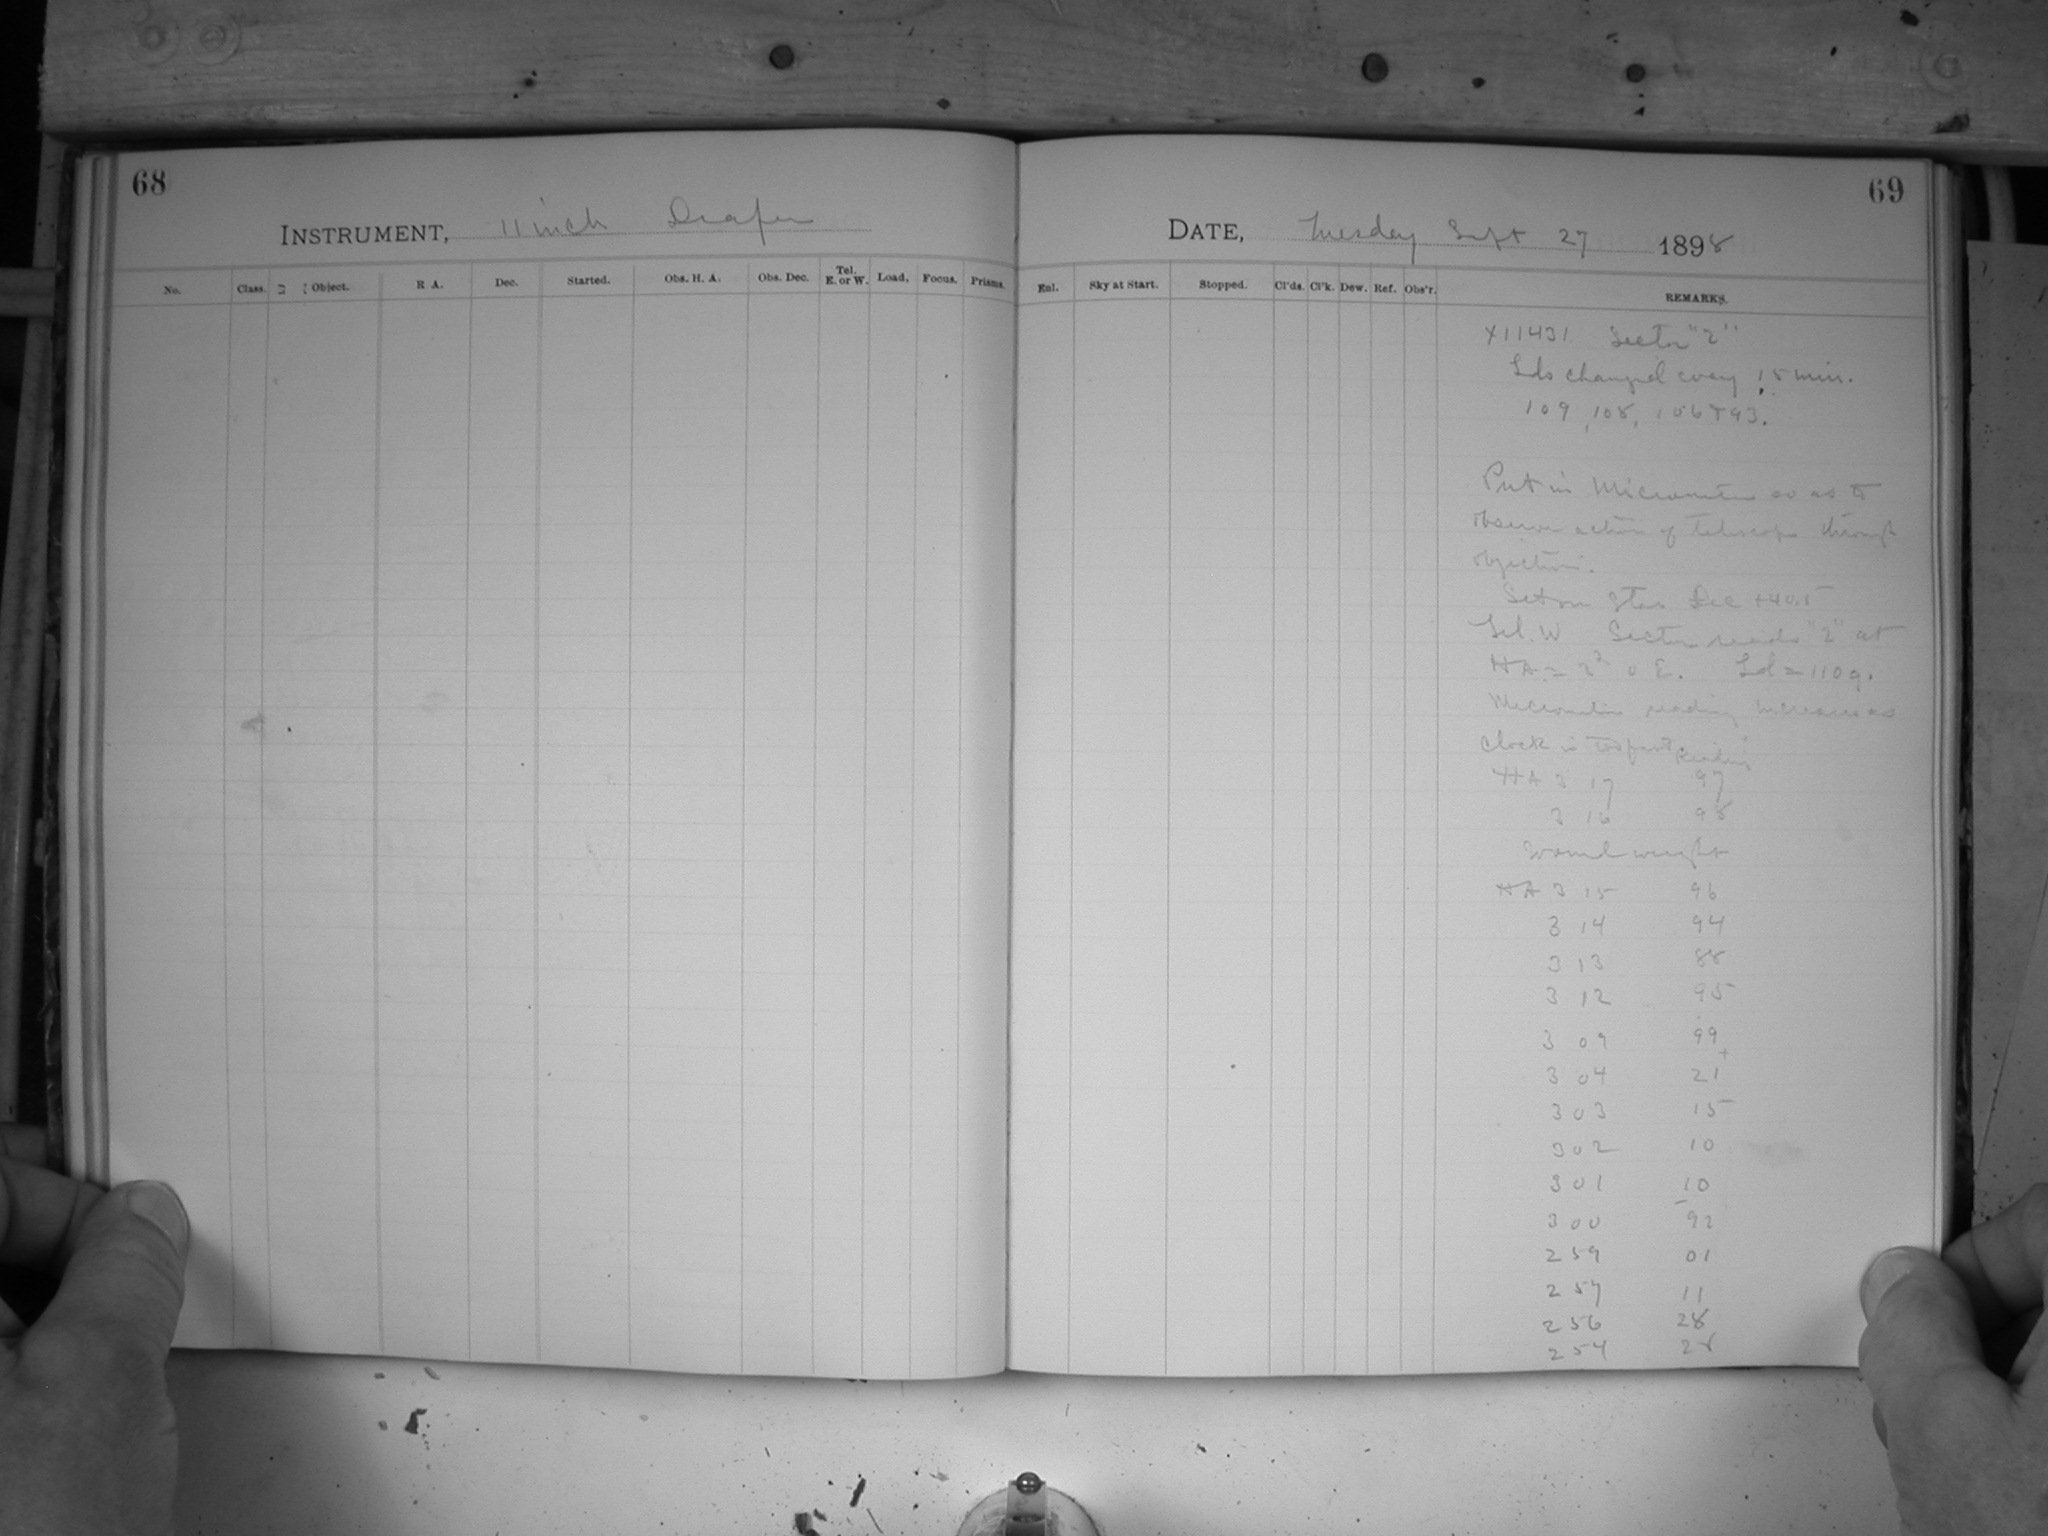 68
INSTRUMENT, 11 inch Draper
No. Class. Object. R A. Dec. Started. Obs. H. A. Obs. Dec. Tel. E. or W. Load. Focus. Prisms.
69
DATE, Tuesday Sept 27 1898
Eul. Sky at Start. Stopped. Cl'ds. Cl'k. Dew. Ref. Obs'r. REMARKS.
X11431 Sector "2"
Lds changed every 15 min.
109, 108, 106 + 93.
Put in Micrometer so as to
observe action of telescope through
objective.
Set on Star Dec +40.5
Tel. W Sector reads "2" at
HA = 3 0 E. Ld = 110 g.
Micrometer reading increases as
clock is too fast Reading
HA 3 17 97
3 16 98
Wound weight
HA 3 15 96
3 14 94
3 13 88
3 12 95
3 09 99
3 04 +21
3 03 15
3 02 10
3 01 10
3 00 -92
2 59 01
2 57 11
2 56 28
2 54 28